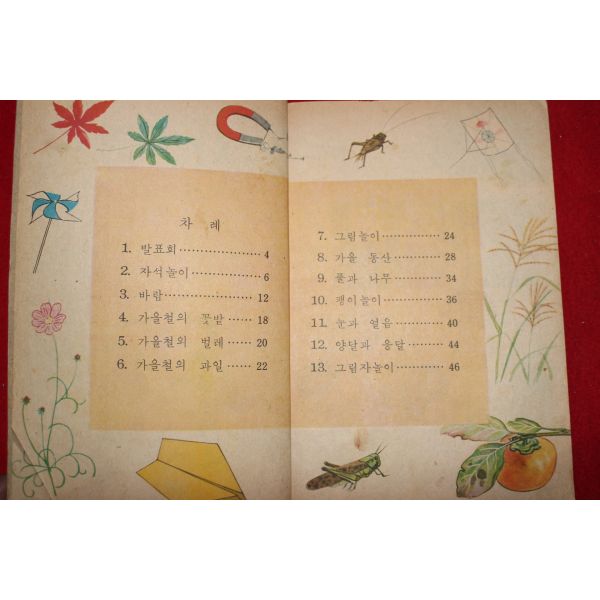 차 례
1. 발표회 ·················· 4
2. 자석놀이 ··············· 6
3. 바람 ···················· 12
4. 가을철의 꽃밭 ······ 18
5. 가을철의 벌레 ······ 20
6. 가을철의 과일 ······ 22
7. 그림놀이 ·············· 24
8. 가을 동산 ············ 28
9. 풀과 나무 ············ 34
10. 팽이놀이 ············· 36
11. 눈과 얼음 ··········· 40
12. 양달과 응달 ········ 44
13. 그림자놀이 ·········· 46